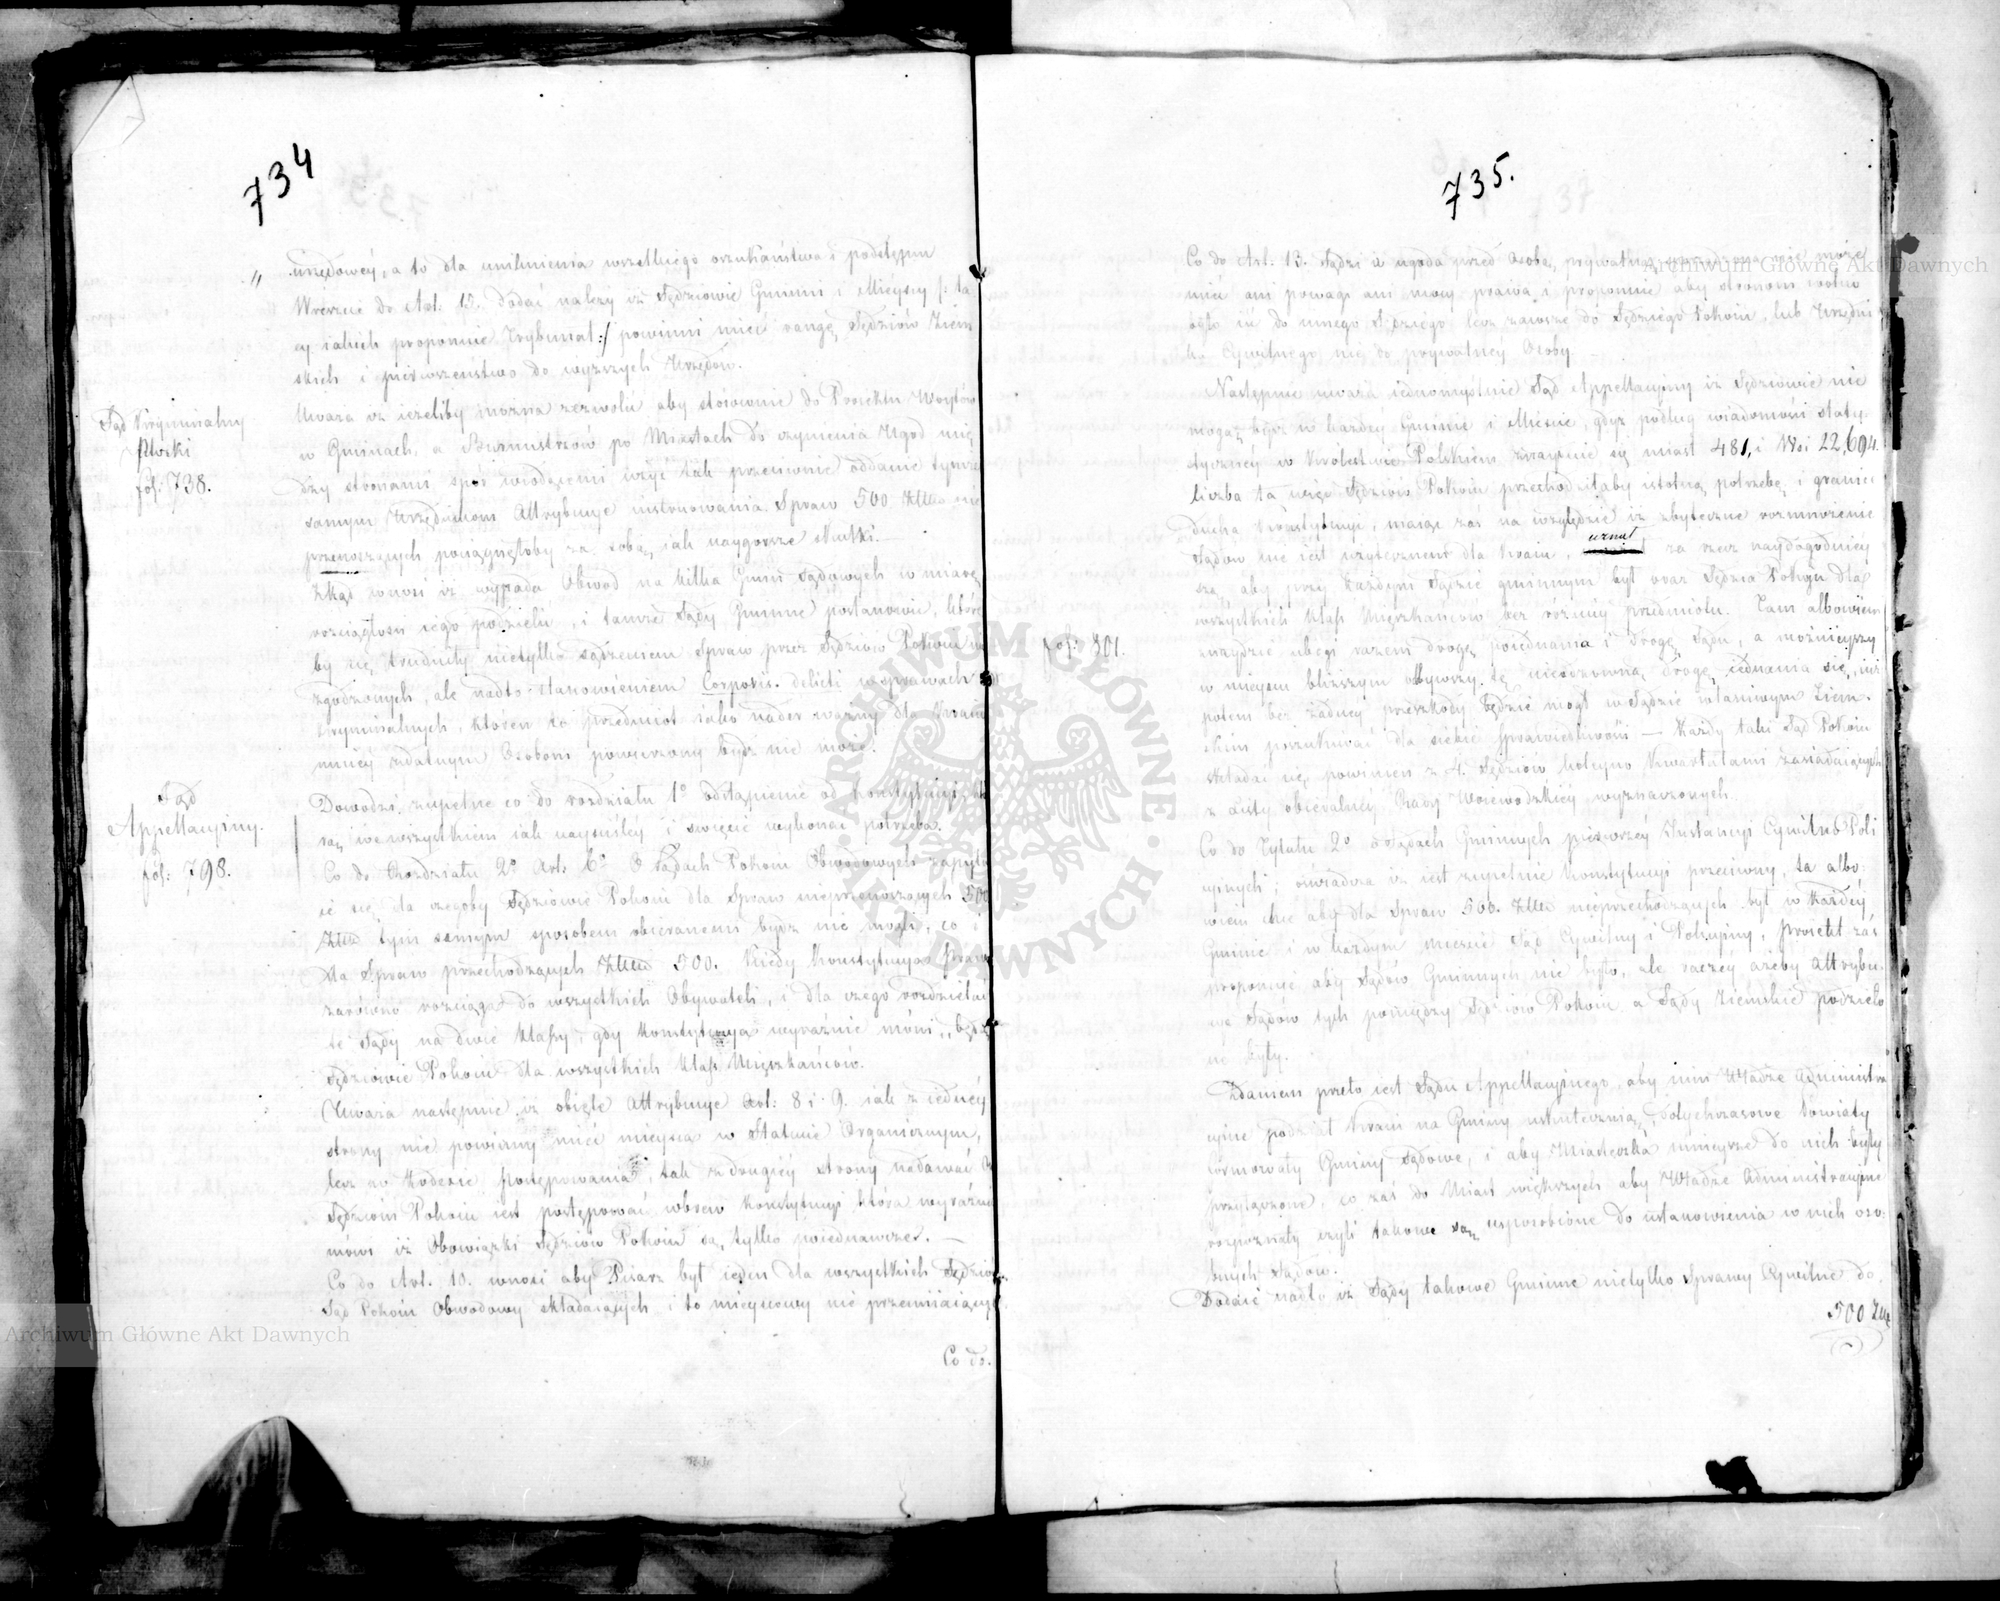 734
urzędowéy, a to dla uniknienia wszelkiego oszukaństwa i podstępu
" Wreszcie do Art. 12. dodać należy iż Sędziowie Gminni i Mieyscy /: ta
cy iakich proponuie Trybunał :/ powinni mieć rangę Sędziów Ziem
skich i pierwszeństwo do wyższych Urzędów.
Sąd Kryminalny
Płocki
fol: 738.
Uważa iż ieżeliby można zezwolić aby stósownie do Proiektu Woytów
w Gminach, a Burmistrzów po Miastach do czynienia Ugod mię
dzy stronami spór wiodącemi użyć tak przeciwnie oddanie tymże
samym Urzędnikom Attrybucye instruowania Spraw 500 Złłło nie
przenoszących pociągnęłoby za sobą iak naygorsze skutki. —
Zkąd wnosi iż wypada Obwod na kilka Gmin Sądowych w miarę
rozciągłości iego podzielić, i tamże Sądy Gminne postanowić, które
by się trudniły nietylko sądzeniem Spraw przez Sędziów Pokoiu nie
zgodzonych, ale nadto stanowieniem Corporis delicti w sprawach
kryminalnych, któren to przedmiot iako nader ważny dla Kraiu
mniéy zdatnym Osobom powierzony bydź nie może.
Sąd
Appellacyiny.
fol: 798.
Dowodzi zupełne co do rozdziału 1º odstąpienie od Konstytucyi
rą we wszystkiem iak nayściśléy i święcie wykonać potrzeba.
Co do Rozdziału 2º Art. 6º o Sądach Pokoiu Obwodowych zapytu
ie się dla czegoby Sędziowie Pokoiu dla Spraw nieprzenoszących 500
Złłło tym samym sposobem obieranemi bydź nie mogli, co i
dla Spraw przechodzących Złłło 500. Kiedy Konstytucya Prawo
zarówno rozciąga do wszystkich Obywateli, i dla czego rozdzielać
te Sądy na dwie klassy, gdy Konstytucya wyraźnie mówi „będą
Sędziowie Pokoiu dla wszystkich klass Mieszkańców.
Uważa następnie iż obięte Attrybucye Art: 8 i 9. iak z iednéy
strony nie powinny mieć mieysca w Statucie Organicznym,
lecz w Kodexie Postępowania, tak z drugiéy strony nadawać
Sędziom Pokoiu iest postępować wbrew Konstytucyi która wyraźnie
mówi iż Obowiązki Sędziów Pokoiu są tylko poiednawcze. —
Co do Art. 10. wnosi aby Pisarz był ieden dla wszystkich Sędziów
Sąd Pokoiu Obwodowy składaiących i to mieyscowy nie przemiiaiący.
Co do.
735.
Co do Art: 13. Sądzi iż ugoda przed Osobą prywatną nie może
mieć ani powagi ani mocy prawa i proponuie aby stronom wolno
było iść do innego Sędziego lecz zawsze do Sędziego Pokoiu, lub Urzędni
ka Cywilnego nie do prywatnéy Osoby
Następnie uważa iednomyślnie Sąd Appellacyiny iż Sędziowie nie
mogą bydź w każdéy Gminie i Mieście, gdyż podług wiadomości staty-
stycznéy w Królestwie Polskiem znayduie się miast 481, i Wsi 22,694.
liczba ta więc Sędziów Pokoiu przechodziłaby istotną potrzebę i granice
ducha Konstytucyi, maiąc zaś na względzie iż zbyteczne rozmnożenie
Sądów nie iest użytecznem dla Kraiu, uznał za rzecz naydogodniéy
szą aby przy każdym Sądzie gminnym był oraz Sędzia Pokoju dla
wszystkich klass Mieszkańców bez różnicy przedmiotu. Tam albowiem
fol: 801.
znaydzie ubogi razem drogę poiednania i drogę Sądu, a możnieyszy
w mieyscu bliższym odbywszy tę nieodzowną drogę iednania się, iuż
potem bez żadnéy przeszkody będzie mógł w Sądzie właściwym Ziem-
skim poszukiwać dla siebie sprawiedliwości — Każdy taki Sąd Pokoiu
składać się powinien z 4. Sędziów koleyno Kwartałami zasiadaiących
z listy obieralnéy Rady Woiewodzkiéy wyznaczonych.
Co do Tytułu 2º o Sądach Gminnych pierwszéy Instancyi Cywilno Poli
cyinych; oświadcza iż iest zupełnie Konstytucyi przeciwny, ta albo-
wiem chce aby dla Spraw 500. Złło nieprzechodzących był w każdéy
Gminie i w każdym mieście Sąd Cywilny i Policyiny, proiekt zaś
proponuie aby Sądów Gminnych nie było, ale raczéy ażeby attrybu-
cye Sądów tych pomiędzy Sędziów Pokoiu a Sądy Ziemskie podzielo
ne były.
Zdaniem przeto iest Sądu Appellacyinego, aby nim Władze Administra
cyine podział Kraiu na Gminy uskutecznią, dotychczasowe Powiaty
formowały Gminy Sądowe, i aby Miasteczka mnieysze do nich były
przyłączone, co zaś do Miast większych aby Władze Administracyine
rozpoznały czyli takowe są usposobione do ustanowienia w nich oso-
bnych Sądów.
Dodaie nadto iż Sądy takowe Gminne nietylko Sprawy Cywilne do
500 Złł
Archiwum Główne Akt Dawnych
Archiwum Główne Akt Dawnych
ARCHIWUM GŁÓWNE · AKT DAWNYCH ·